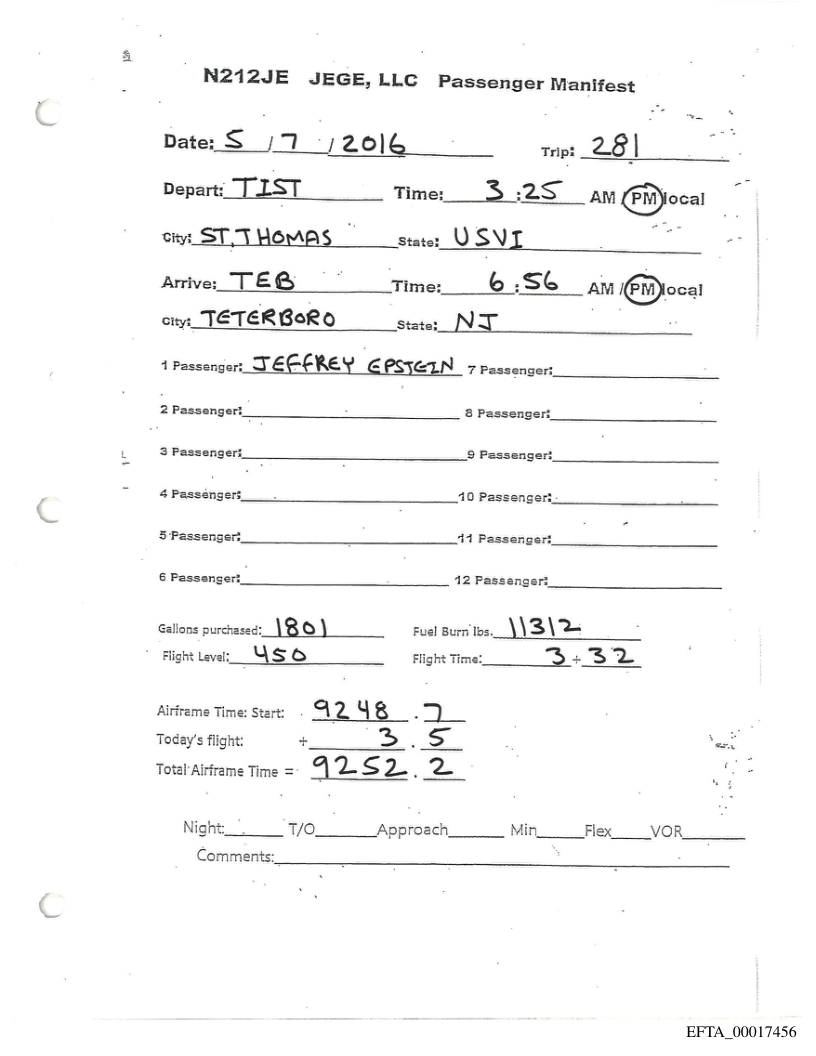 N212JE JEGE, LLC Passenger Manifest
Date: 5 / 7 / 2016 Trip: 281
Depart: TIST Time: 3:25 AM / PM local
City: ST. THOMAS State: USVI
Arrive: TEB Time: 6:56 AM / PM local
City: TETERBORO State: NJ
1 Passenger: JEFFREY EPSTEIN 7 Passenger:
2 Passenger: 8 Passenger:
3 Passenger: 9 Passenger:
4 Passenger: 10 Passenger:
5 Passenger: 11 Passenger:
6 Passenger: 12 Passenger:
Gallons purchased: 1801 Fuel Burn lbs. 11312
Flight Level: 450 Flight Time: 3 + 32
Airframe Time: Start: 9248.7
Today's flight: + 3.5
Total Airframe Time = 9252.2
Night: T/O Approach Min Flex VOR
Comments:
EFTA_00017456